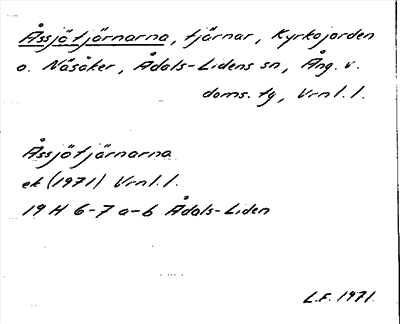 Åssjötjärnarna, tjärnar, Kyrkojorden
o. Näsåker, Ådals-Lidens sn, Ång. v.
doms. tg, Vrnl. l.
Åssjötjärnarna
ek (1971) Vrnl. l.
19 H 6-7 a-b Ådals-Liden
L.F. 1971.